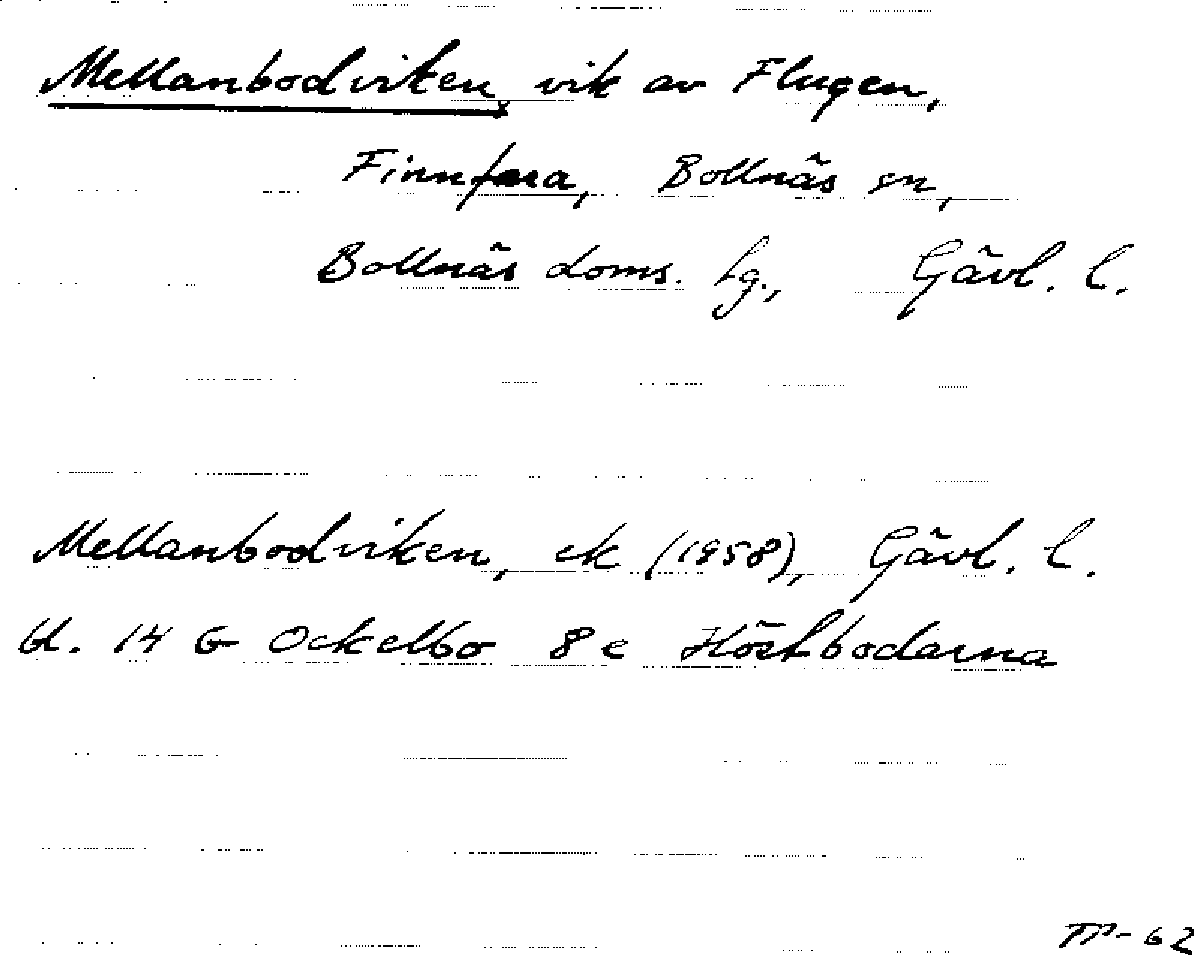 Mellanbodviken, vik av Flugen,
Finnfara, Bollnäs sn,
Bollnäs doms. hg., Gävl. l.
Mellanbodviken, ek (1958), Gävl. l.
bl. 14 G Ockelbo 8 e Höstbodarna
TP-62